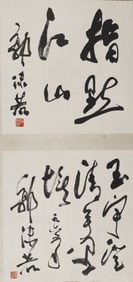 指點
江山
郭沫若
玉宇澄
清萬里
埃
一九六
郭沫若